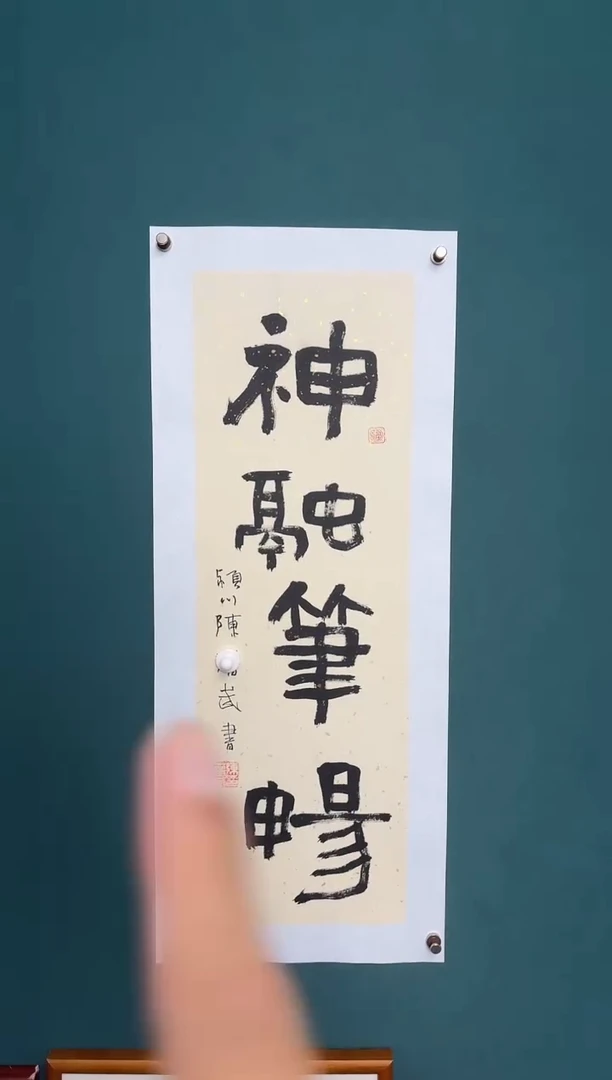 神融筆暢
潁川陳
武書